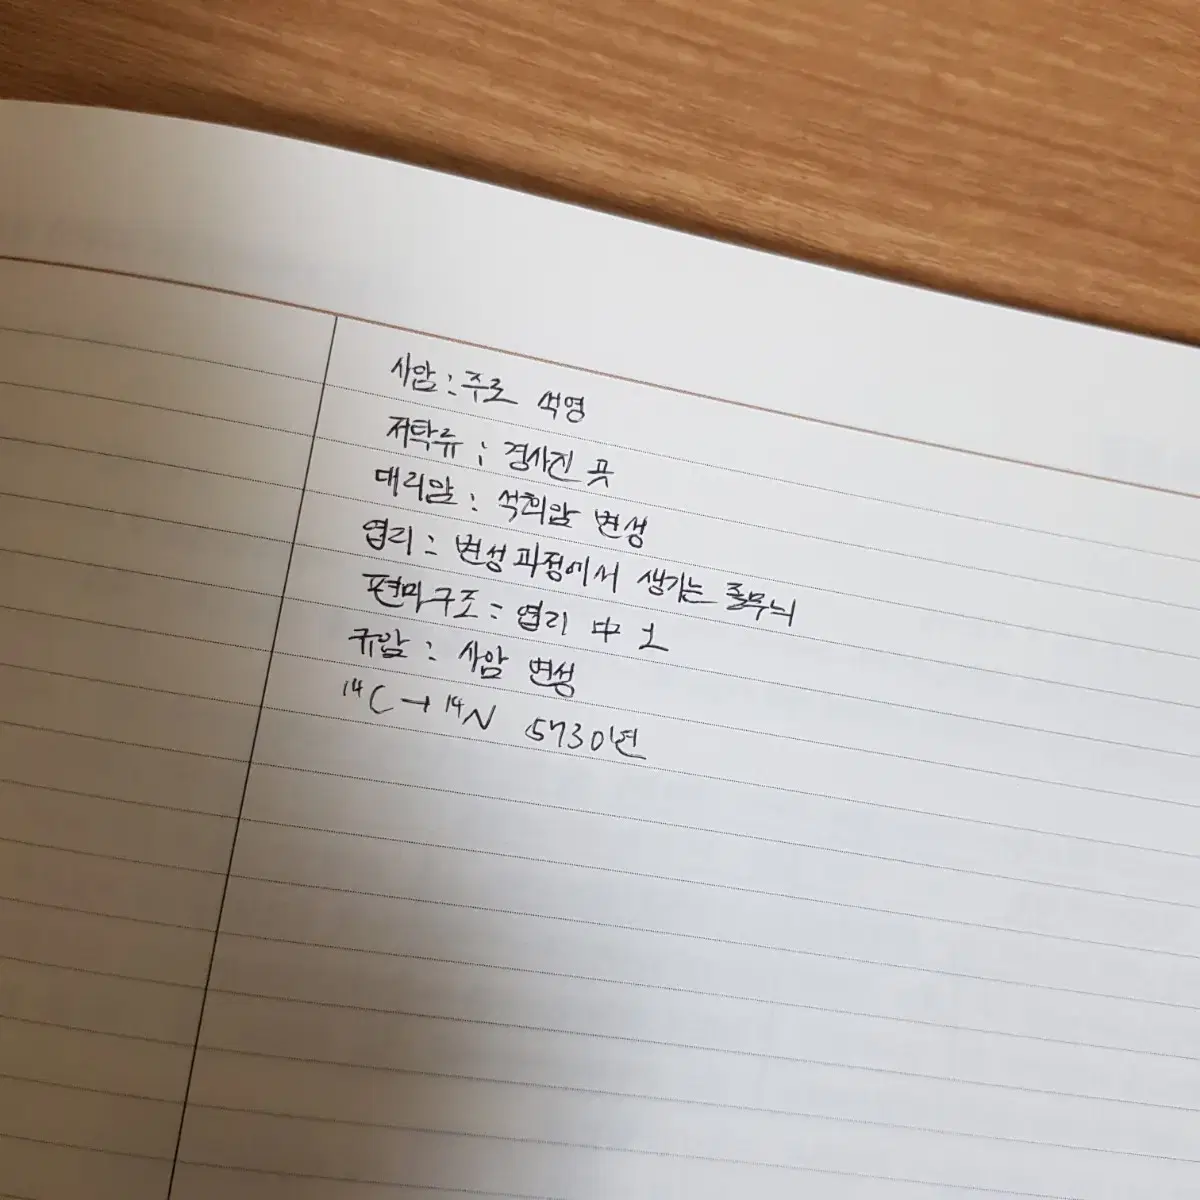 사암 : 주로 석영
저탁류 ; 경사진 곳
대리암 : 석회암 변성
엽리 : 변성과정에서 생기는 줄무늬
편마구조 : 엽리 中 1
규암 : 사암 변성
¹⁴C → ¹⁴N 5730년